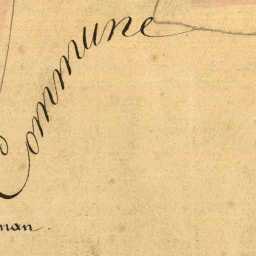 Commune
man.